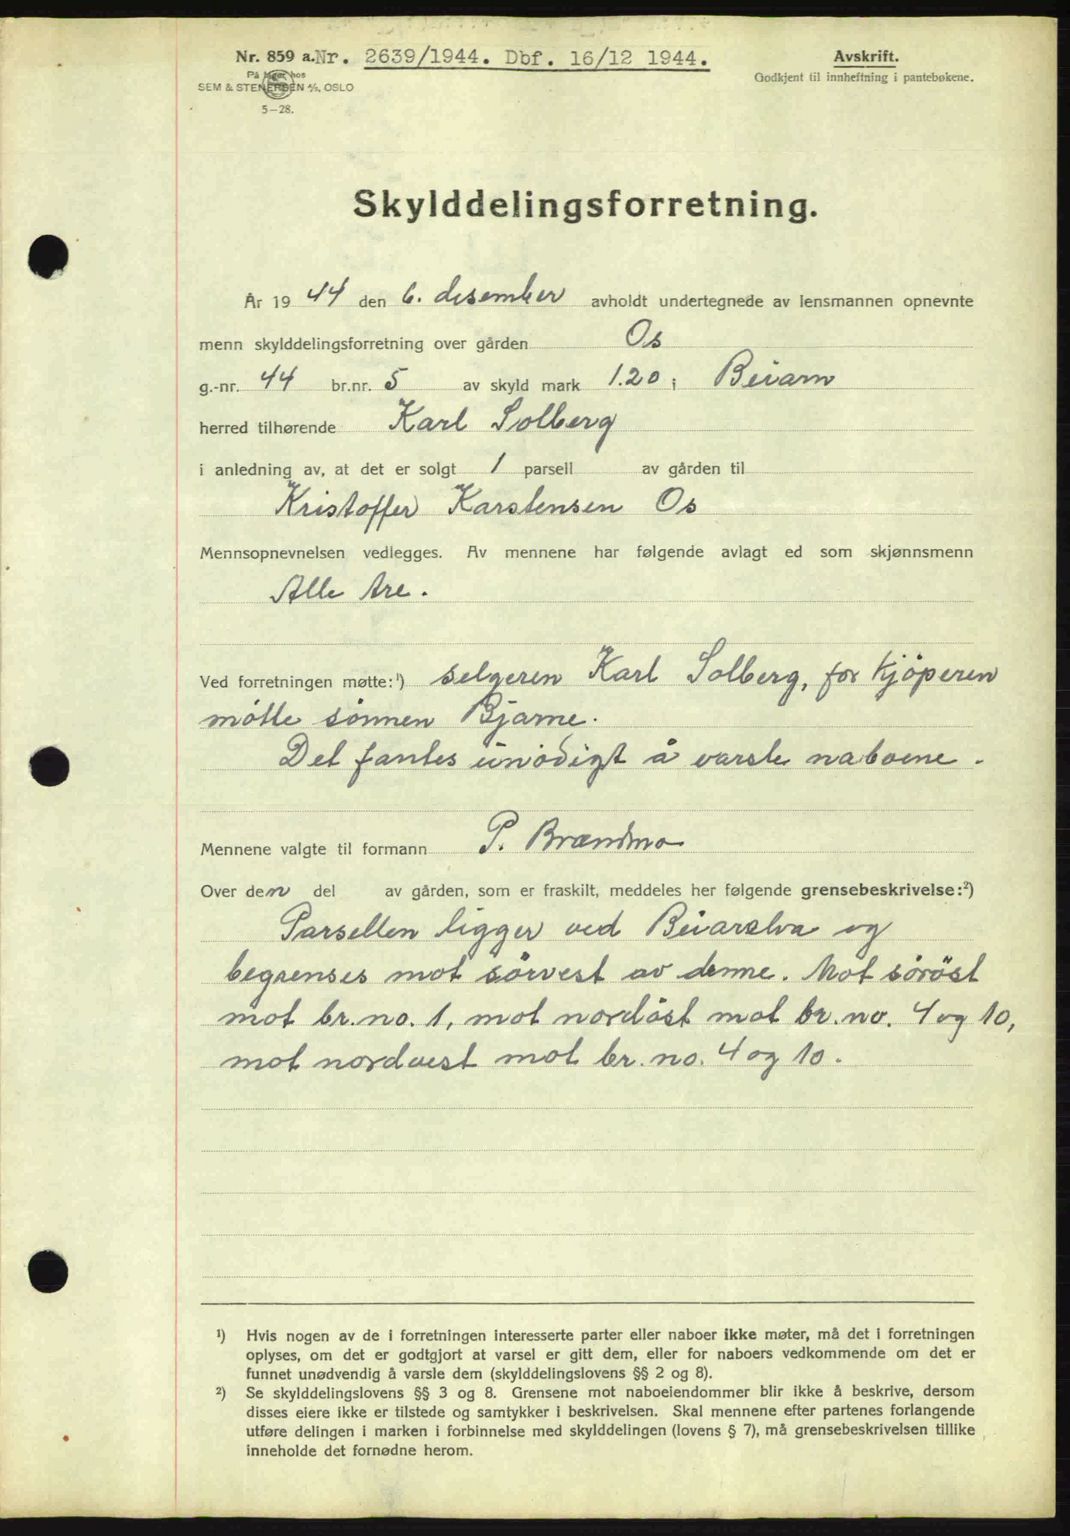 Nr. 859 a. Nr. 2639/1944. Dbf. 16/12 1944.
Avskrift.
På lager hos
SEM & STENERSEN A/S, OSLO
5-28.
Godkjent til innheftning i pantebøkene.
Skylddelingsforretning.
År 1944 den 6. desember avholdt undertegnede av lensmannen opnevnte
menn skylddelingsforretning over gården Os
g.-nr. 44 br.nr. 5 av skyld mark 1.20 i Beiarn
herred tilhørende Karl Solberg
i anledning av, at det er solgt 1 parsell av gården til
Kristoffer Karstensen Os
Mennsopnevnelsen vedlegges. Av mennene har følgende avlagt ed som skjønnsmenn
Alle tre.
Ved forretningen møtte:¹) selgeren Karl Solberg, for kjöperen
mötte sönnen Bjarne.
Det fantes unödigt å varsle naboene.
Mennene valgte til formann P. Brændmo
Over den del av gården, som er fraskilt, meddeles her følgende grensebeskrivelse:²)
Parsellen ligger ved Beiarelva og
begrenses mot sörvest av denne. Mot söröst
mot br.no. 1, mot nordöst mot br.no. 4 og 10,
mot nordvest mot br.no. 4 og 10.
¹) Hvis nogen av de i forretningen interesserte parter eller naboer ikke møter, må det i forretningen
oplyses, om det er godtgjort at varsel er gitt dem, eller for naboers vedkommende om det er
funnet unødvendig å varsle dem (skylddelingslovens §§ 2 og 8).
²) Se skylddelingslovens §§ 3 og 8. Grensene mot naboeiendommer blir ikke å beskrive, dersom
disses eiere ikke er tilstede og samtykker i beskrivelsen. Skal mennene efter partenes forlangende
utføre delingen i marken i forbinnelse med skylddelingen (lovens § 7), må grensebeskrivelsen tillike
inneholde det fornødne herom.